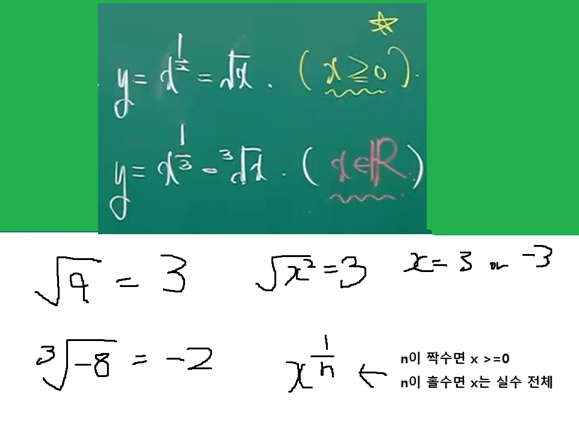 y = x^{1/2} = √x . ( x ≧ 0 ).
y = x^{1/3} = ³√x . ( x ∈ ℝ )
√9 = 3 √x² = 3 x = 3 or -3
³√-8 = -2 x^{1/n} ← n이 짝수면 x >=0
n이 홀수면 x는 실수 전체